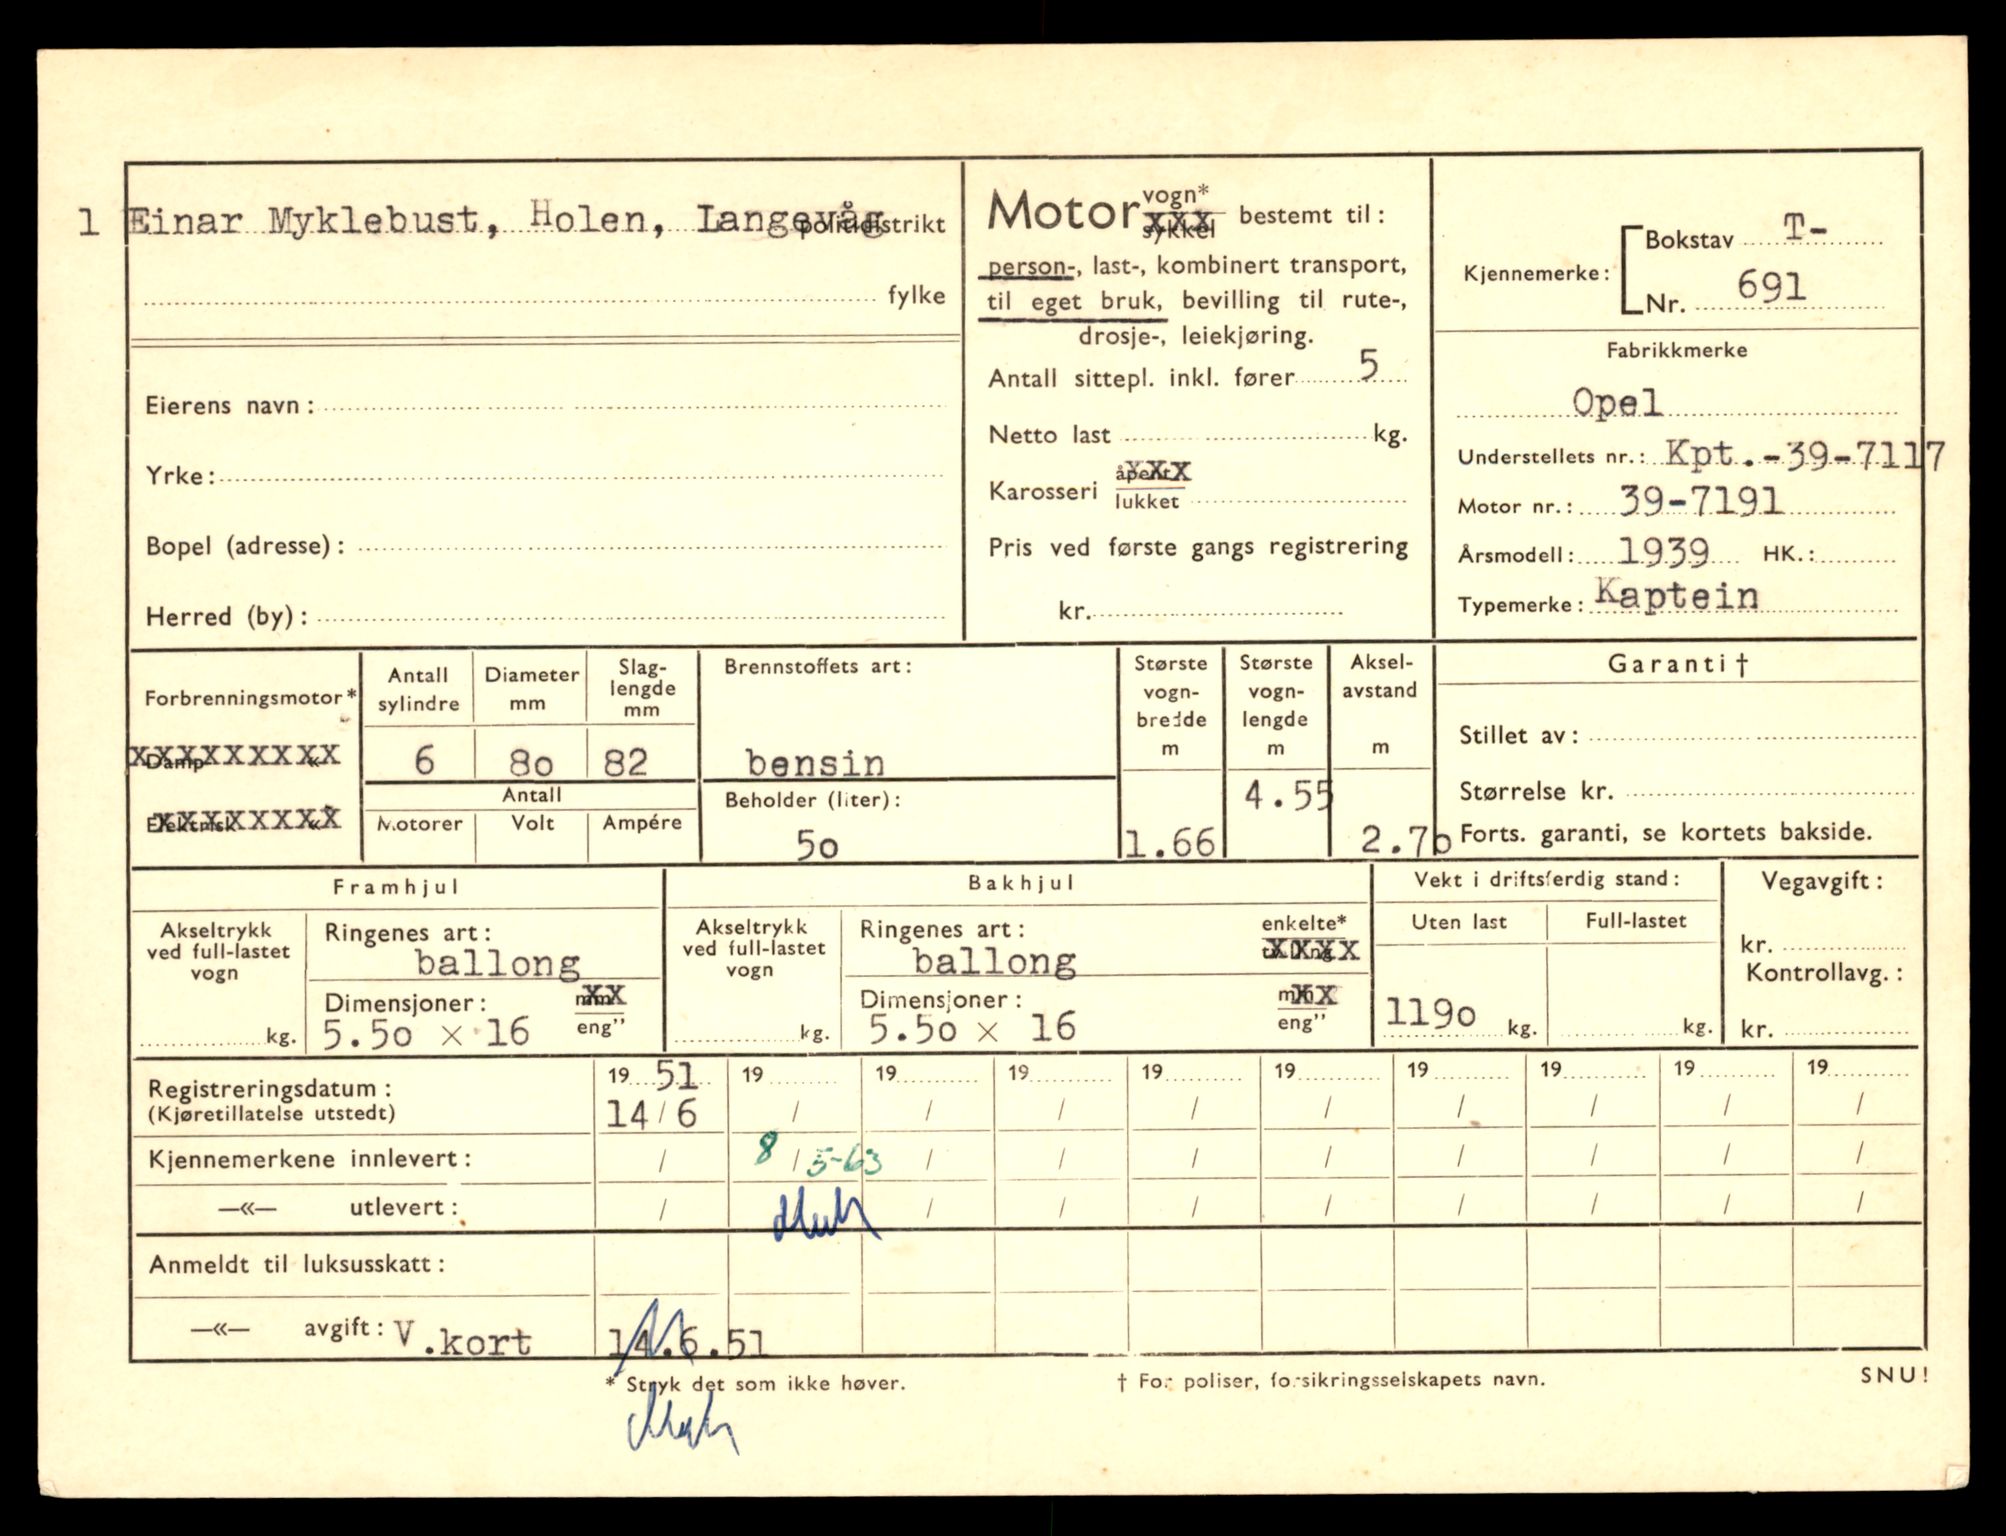 1 Einar Myklebust, Holen, Langevåg politidistrikt
fylke
Eierens navn:
Yrke:
Bopel (adresse):
Herred (by):
Motor vogn* sykkel bestemt til:
person-, last-, kombinert transport,
til eget bruk, bevilling til rute-,
drosje-, leiekjøring.
Antall sittepl. inkl. fører 5
Netto last kg.
Karosseri åpent lukket
Pris ved første gangs registrering
kr.
Kjennemerke: Bokstav T-
Nr. 691
Fabrikkmerke
Opel
Understellets nr.: Kpt.-39-7117
Motor nr.: 39-7191
Årsmodell: 1939 HK.:
Typemerke: Kaptein
Forbrenningsmotor*
XXXXXXXXX
Damp «
XXXXXXXX
Elektrisk «
Antall sylindre
6
Diameter mm
80
Slag-lengde mm
82
Antall
Motorer Volt Ampére
Brennstoffets art:
bensin
Beholder (liter):
50
Største vogn-bredde m
1.66
Største vogn-lengde m
4.55
Aksel-avstand m
2.70
Garanti †
Stillet av:
Størrelse kr.
Forts. garanti, se kortets bakside.
Framhjul
Akseltrykk ved full-lastet vogn
kg.
Ringenes art:
ballong
Dimensjoner: mm XX
5.50 x 16 eng”
Bakhjul
Akseltrykk ved full-lastet vogn
kg.
Ringenes art: enkelte*
ballong XXXX
Dimensjoner: mm XX
5.50 x 16 eng”
Vekt i driftsferdig stand:
Uten last Full-lastet
1190 kg. kg.
Vegavgift:
kr.
Kontrollavg.:
kr.
Registreringsdatum: 19 51 19 19 19 19 19 19 19 19 19
(Kjøretillatelse utstedt) 14/6 / / / / / / / / /
Kjennemerkene innlevert: / 8/5-63 / / / / / / / /
—«— utlevert: / / / / / / / / /
Anmeldt til luksusskatt:
—«— avgift: V.kort 14.6.51
* Stryk det som ikke høver.
† For poliser, forsikringsselskapets navn.
SNU!